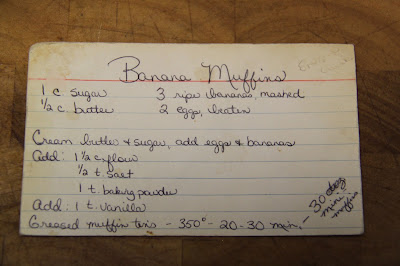 Banana Muffins
1 c. sugar 3 ripe bananas, mashed
1/2 c. butter 2 eggs, beaten
Cream butter & sugar, add eggs & bananas
Add: 1 1/2 c flour
1/2 t. salt
1 t. baking powder
Add: 1 t. vanilla
Greased muffin tins - 350° - 20-30 min. -
30
mini
muffins